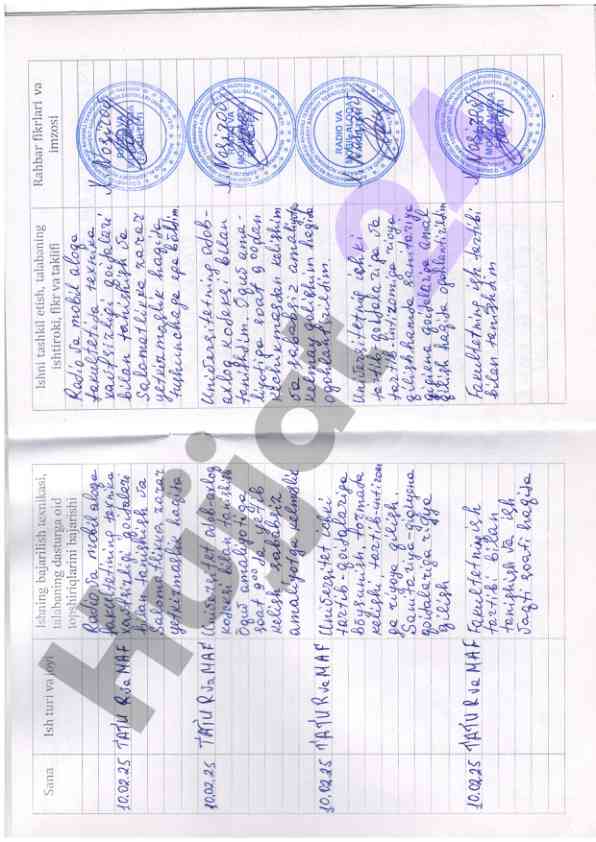 Sana
Ish turi va joyi
Ishning bajarilish texnikasi,
talabaning dasturga oid
topshiriqlarini bajarishi
Ishni tashkil etish, talabaning
ishtiroki, fikr va taklifi
Rahbar fikrlari va
imzosi
10.02.25 TATU R va MAF
Radio va mobil aloqa
fakultetining texnika
xavfsizligi qoidalari
bilan tanishish va
Salomatlikka zarar
yetkizmaslik haqida
Radio va mobil aloqa
fakultetida texnika
xavfsizligi qoidalari
bilan tanishish va
Salomatlikka zarar
yetkizmaslik haqida
tushunchaga ega bo'ldim
N. Nosirov
RADIO VA
MOBIL ALOQA
FAKULTETI
10.02.25 TATU R va MAF
Universitet odob-axloq
kodeksi bilan tanishish
Oquv amaliyotiga
soat 9:00 da yetib
kelish, sababsiz
amaliyotga kelmaslik
Universitetning odob-
axloq kodeksi bilan
tanishdim. Oquv ama-
liyotiga soat 9:00 dan
kechikmasdan kelishim
va sababsiz amaliyotga
kelmay qolishim haqida
ogohlantirildim.
N. Nosirov
RADIO VA
MOBIL ALOQA
FAKULTETI
10.02.25 TATU R va MAF
Universitet ichki
tartib-qoidalariga
bo'ysunish, formada
kelish, tartib-intizom
ga rioya qilish.
Sanitariya-gigiyena
qoidalariga rioya
qilish
Universitetning ichki
tartib qoidalariga va
tartib intizomiga rioya
qilish hamda sanitariya
gigiena qoidalariga amal
qilish haqida ogohlantirildim
N. Nosirov
RADIO VA
MOBIL ALOQA
FAKULTETI
10.02.25 TATU R va MAF
Fakultetning ish
tartibi bilan
tanishish va ish
vaqti soati haqida
Fakultetning ish tartibi
bilan tanishdim
N. Nosirov
RADIO VA
MOBIL ALOQA
FAKULTETI
Hujjat 24